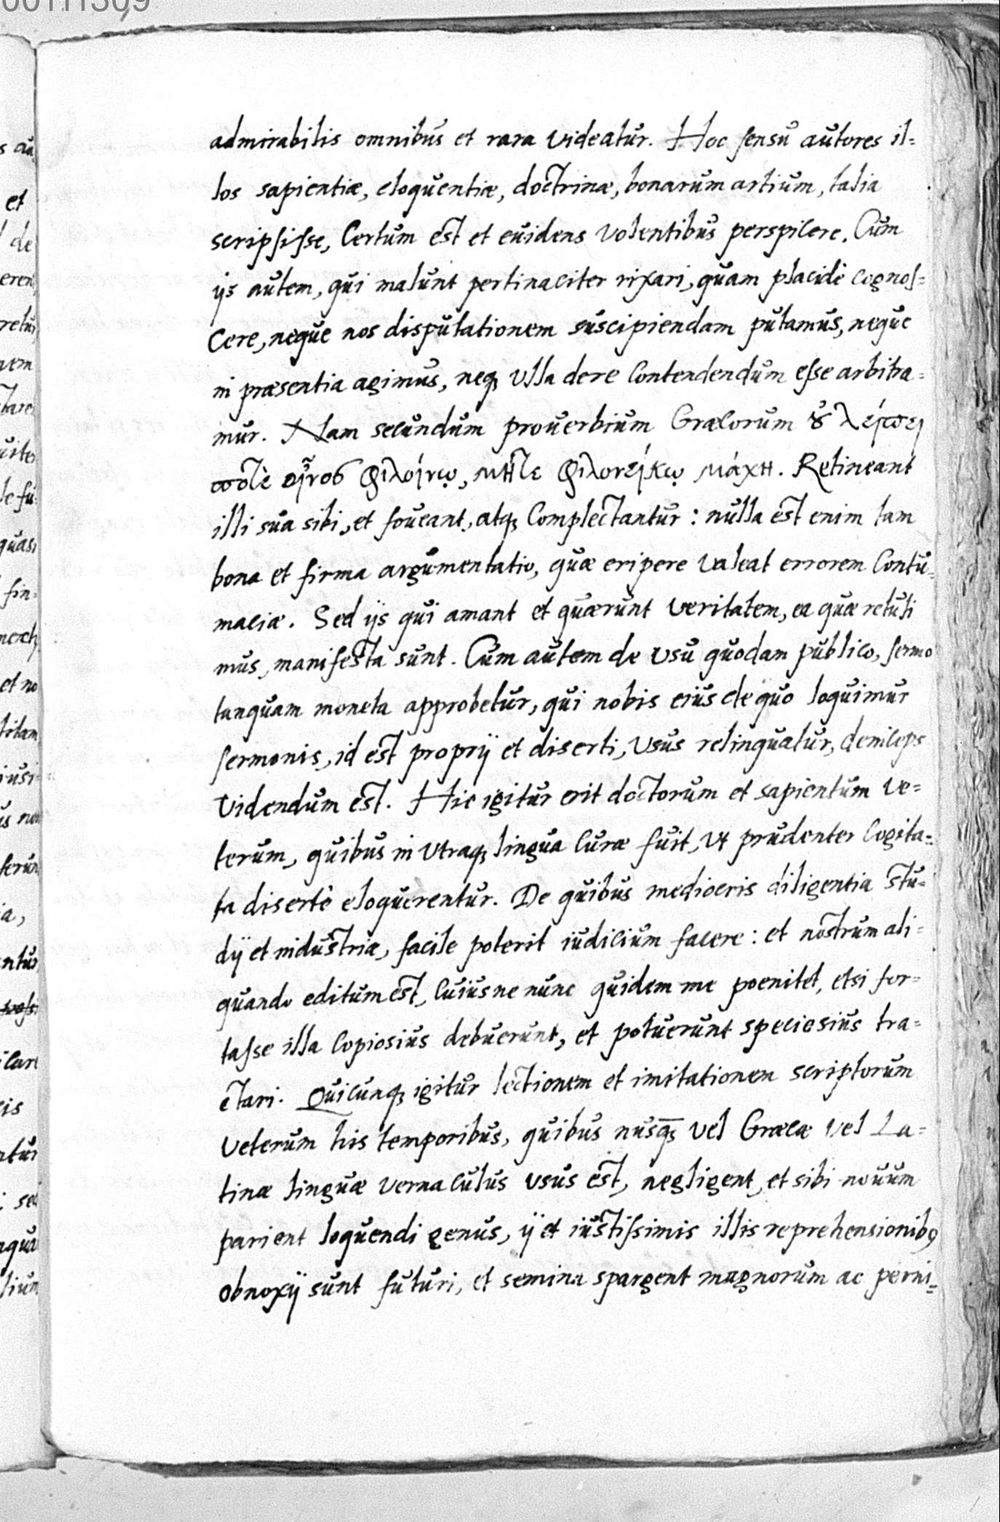 00111309
admirabilis omnibus et rara videatur. Hoc sensu autores il-
los sapientiæ, eloquentiæ, doctrinæ, bonarum artium, talia
scripsisse, certum est et euidens volentibus perspicere. Cum
ijs autem, qui malunt pertinaciter rixari, quam placidè cognos-
cere, neque nos disputationem suscipiendam putamus, neque
in præsentia agimus, neq; vlla de re contendendum esse arbitra-
mur. Nam secundum prouerbium Græcorum οὐ λείπει
ποτὲ οἶνος φιλοίνῳ, μήτε φιλονείκῳ μάχη. Retineant
illi sua sibi, et foueant, atq; complectantur: nulla est enim tam
bona et firma argumentatio, quæ eripere valeat errorem contu-
maciæ. Sed ijs qui amant et quærunt veritatem, ea quæ retuli
mus, manifesta sunt. Cum autem de vsu quodam publico, sermo
tanquam moneta approbetur, qui nobis eius de quo loquimur
sermonis, id est proprij et diserti, vsus relinquatur, deniceps
videndum est. Hic igitur erit doctorum et sapientum ve-
terum, quibus in vtraq; lingua curæ fuit, vt prudenter cogita-
ta disertè eloquerentur. De quibus mediocris diligentia stu-
dij et industriæ, facile poterit iudicium facere: et nostrum ali-
quando editum est, cuius ne nunc quidem me poenitet, etsi for-
tasse illa copiosius debuerunt, et potuerunt speciosius tra-
ctari. Quicunq; igitur lectionem et imitationem scriptorum
veterum his temporibus, quibus nusq̃ vel Græcæ vel La-
tinæ linguæ vernaculus vsus est, negligent, et sibi nouum
parient loquendi genus, ij et iustissimis illis reprehensionib9
obnoxij sunt futuri, et semina spargent magnorum ac perni-